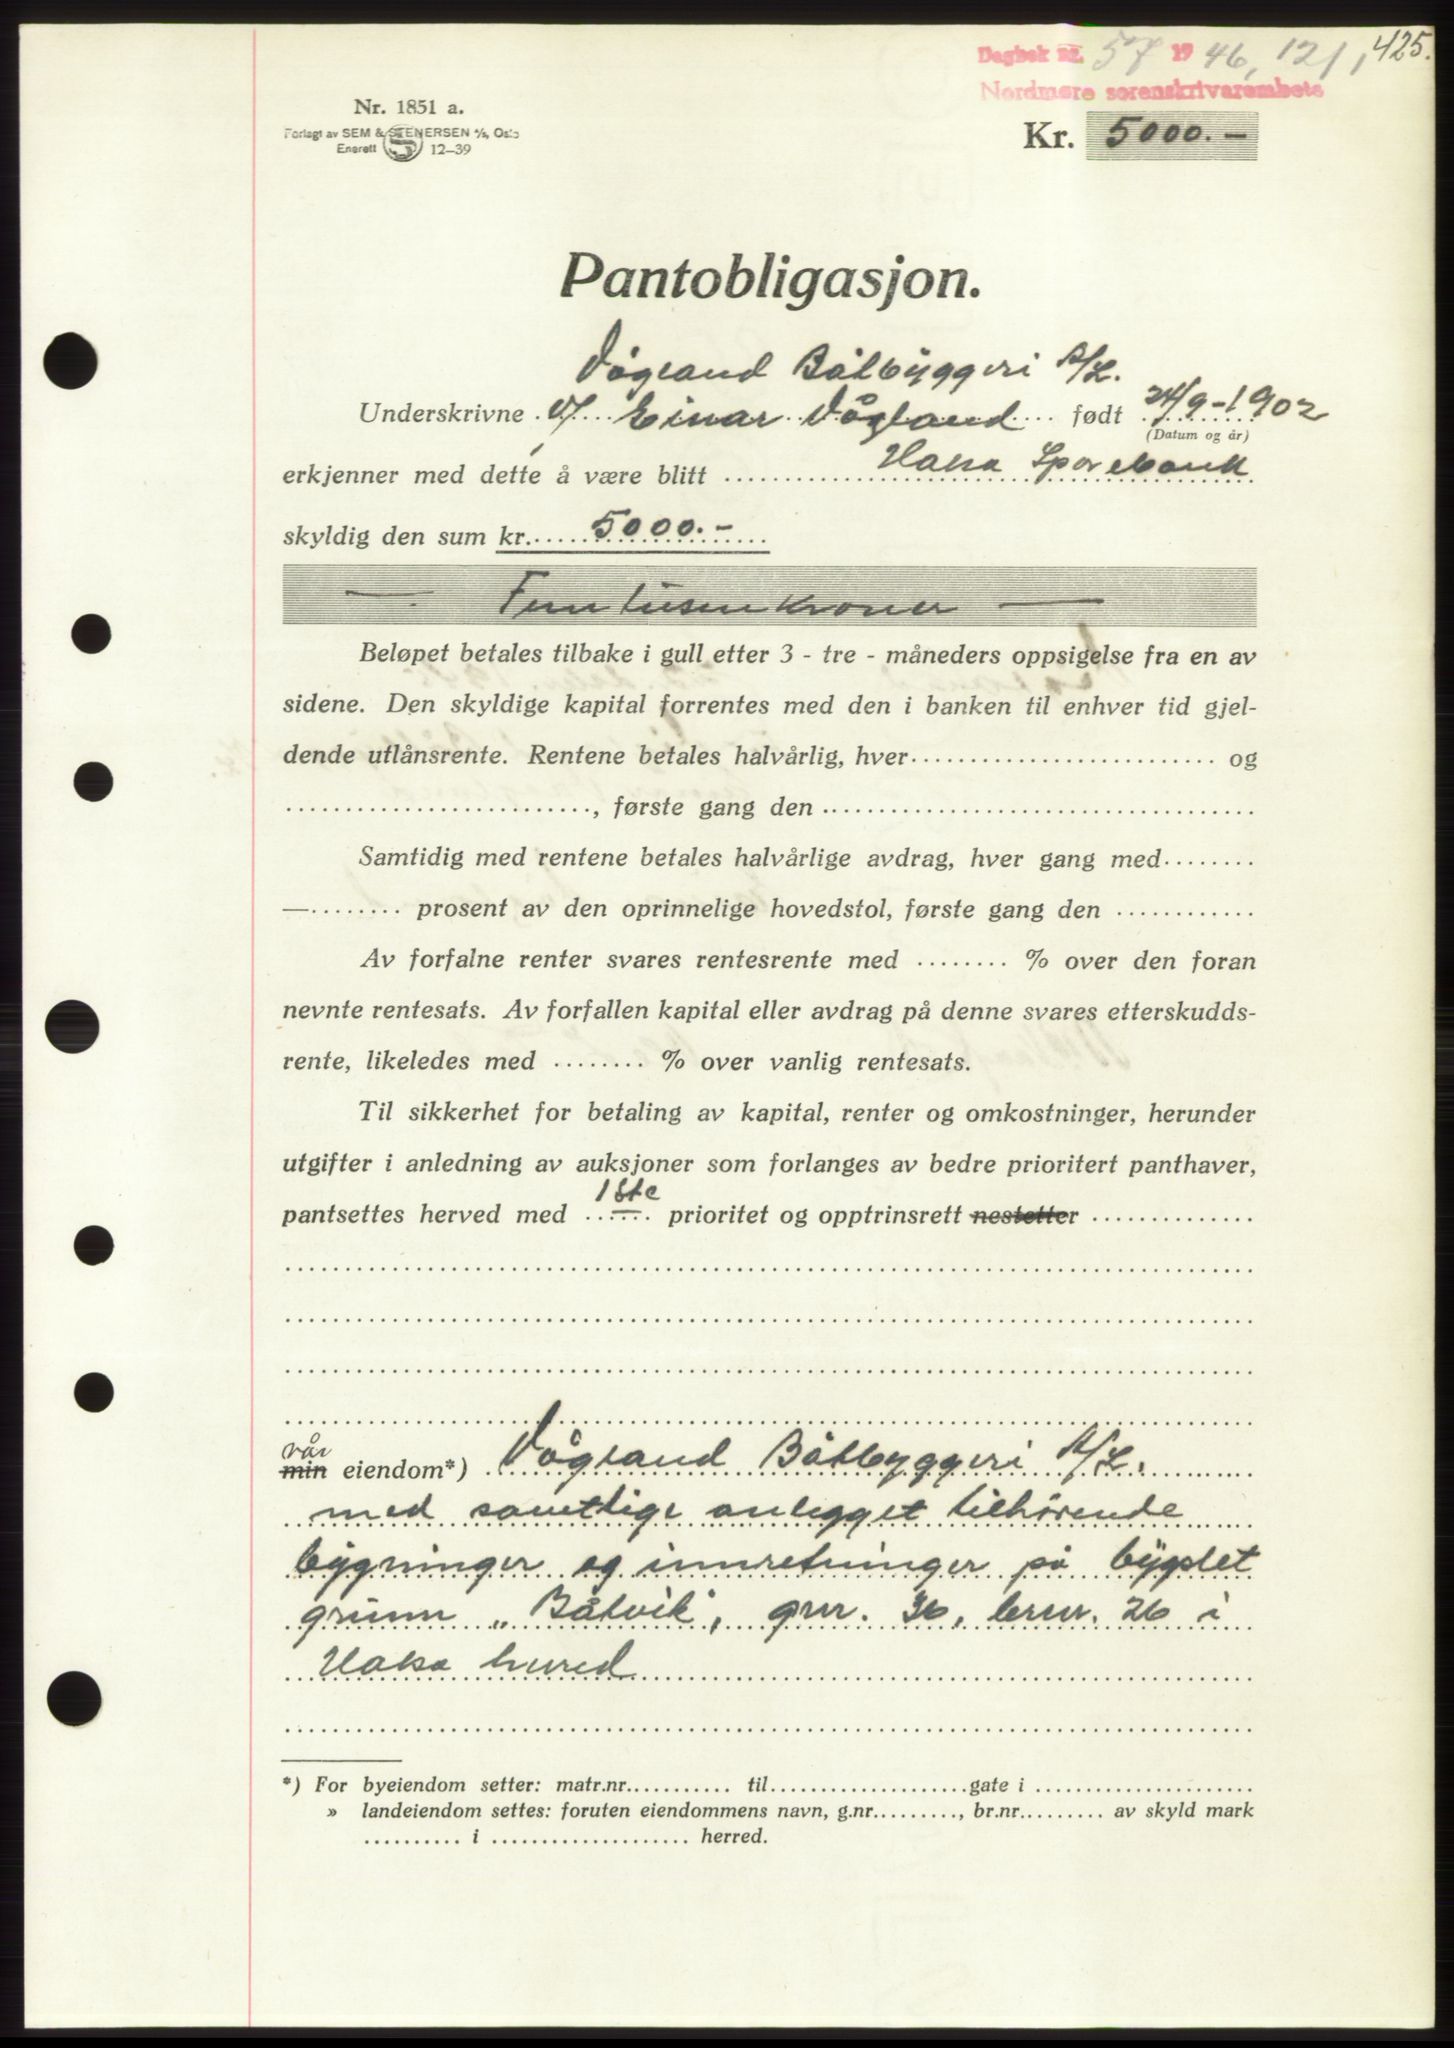 425.
Dagbok nr. 57 1946, 12/1,
Nordmøre sorenskrivarembete
Nr. 1851 a.
Forlagt av SEM & STENERSEN A/S, Oslo
Enerett S 12–39
Kr. 5000.–
Pantobligasjon.
Vågland Båtbyggeri A/L.
Underskrivne v/ Einar Vågland født 24/9–1902
(Datum og år)
erkjenner med dette å være blitt Halsa Sparebank
skyldig den sum kr. 5000.–
— Femtusenkroner —
Beløpet betales tilbake i gull etter 3 - tre - måneders oppsigelse fra en av
sidene. Den skyldige kapital forrentes med den i banken til enhver tid gjel-
dende utlånsrente. Rentene betales halvårlig, hver .......... og
.........., første gang den ..........
Samtidig med rentene betales halvårlige avdrag, hver gang med ........
—........ prosent av den oprinnelige hovedstol, første gang den ..........
Av forfalne renter svares rentesrente med ........ % over den foran
nevnte rentesats. Av forfallen kapital eller avdrag på denne svares etterskudds-
rente, likeledes med ........ % over vanlig rentesats.
Til sikkerhet for betaling av kapital, renter og omkostninger, herunder
utgifter i anledning av auksjoner som forlanges av bedre prioritert panthaver,
pantsettes herved med 1ste prioritet og opptrinsrett nestetter ..........
vår
min eiendom*) Vågland Båtbyggeri A/L.
med samtlige anlegget tilhørende
bygninger og innretninger på bygslet
grunn „Båtvik", gnr. 36, brnr. 26 i
Halsa herred
*) For byeiendom setter: matr.nr. .......... til .......... gate i ..........
» landeiendom settes: foruten eiendommens navn, g.nr. ........, br.nr. ........ av skyld mark
.......... i .......... herred.